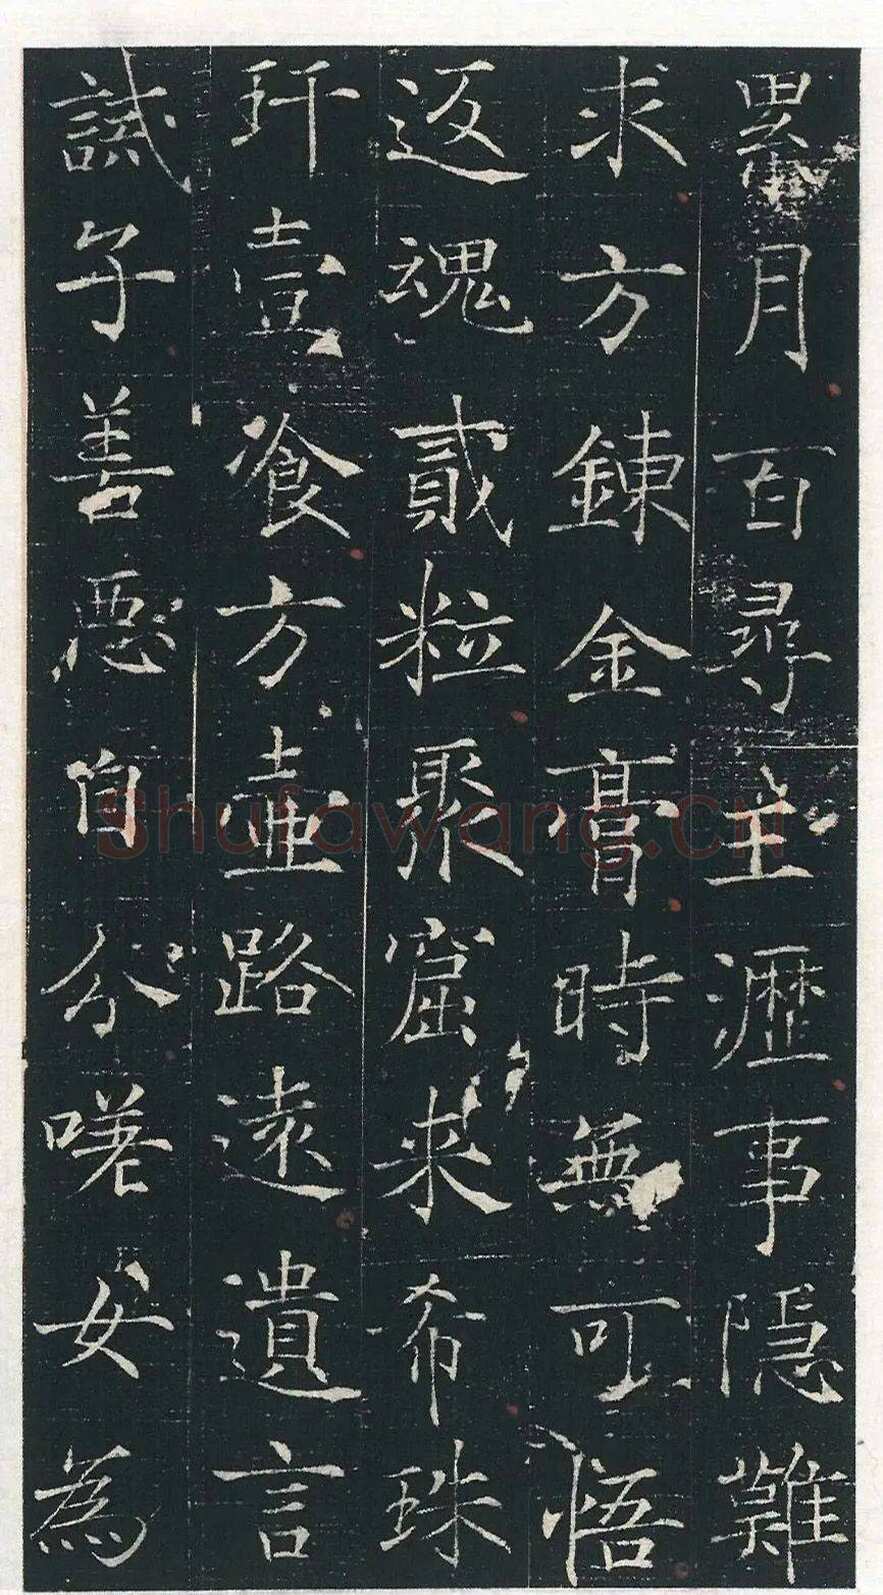 累月百尋瀝事隱難
求方鍊金膏時無可悟
返魂貳粒聚窟来希珠
玕壹飡方壺路遠遺言
誡子善惡自分嗟女為
Shufawang.CN